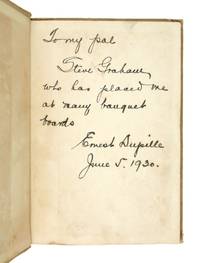 To my pal
Steve Graham
who has placed me
at many banquet
boards
Ernest Dupille
June 5. 1930.